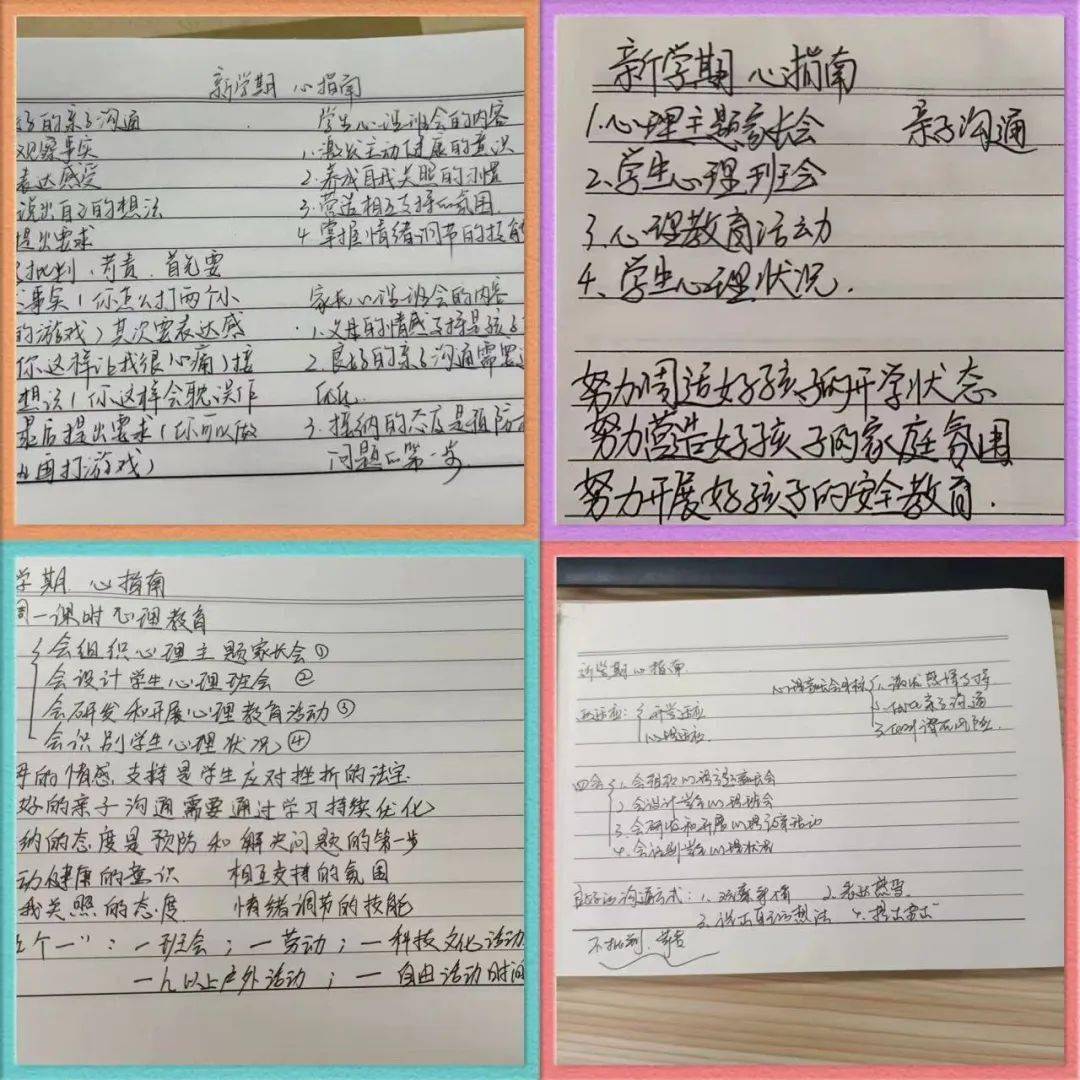 新学期 心指南
好的亲子沟通
观察事实
表达感受
说出自己的想法
提出要求
批判、苛责.首先要
事实(你怎么打两个小
的游戏)其次要表达感
你这样让我很心痛)接
想法(你这样会耽误作
最后提出要求(你可以做
再打游戏)
学生心理班会的内容
1.激发主动健康的意识
2.养成自我关照的习惯
3.营造相互支持的氛围
4.掌握情绪调节的技能
家长心理班会的内容
1.父母的情感支持是孩子
2.良好的亲子沟通需要
优化.
3.接纳的态度是预防
问题的第一步.
新学期 心指南
1.心理主题家长会 亲子沟通
2.学生心理班会
3.心理教育活动
4、学生心理状况.
努力调适好孩子的开学状态
努力营造好孩子的家庭氛围
努力开展好孩子的安全教育.
学期 心指南
周一课时心理教育
会组织心理主题家长会①
会设计学生心理班会 ②
会研发和开展心理教育活动③
会识别学生心理状况④
的情感支持是学生应对挫折的法宝
好的亲子沟通需要通过学习持续优化
纳的态度是预防和解决问题的第一步
动健康的意识 相互支持的氛围
我关照的态度 情绪调节的技能
五个一":一班会;一劳动;一科技文化活动
一h以上户外活动;一自由活动时间
新学期心指南.
开学适应
心理适应
心理家长会目标
1.激发 支持
2.优化亲子沟通
3. 潜在风险
四会
1.会组织心理主题家长会
2.会设计学生心理班会
3.会研发和开展心理教育活动
4.会识别学生心理状况
良好的沟通方式:1.观察事情 2.表达感受
3.说出自己的想法 4.提出要求
不批判、苛责